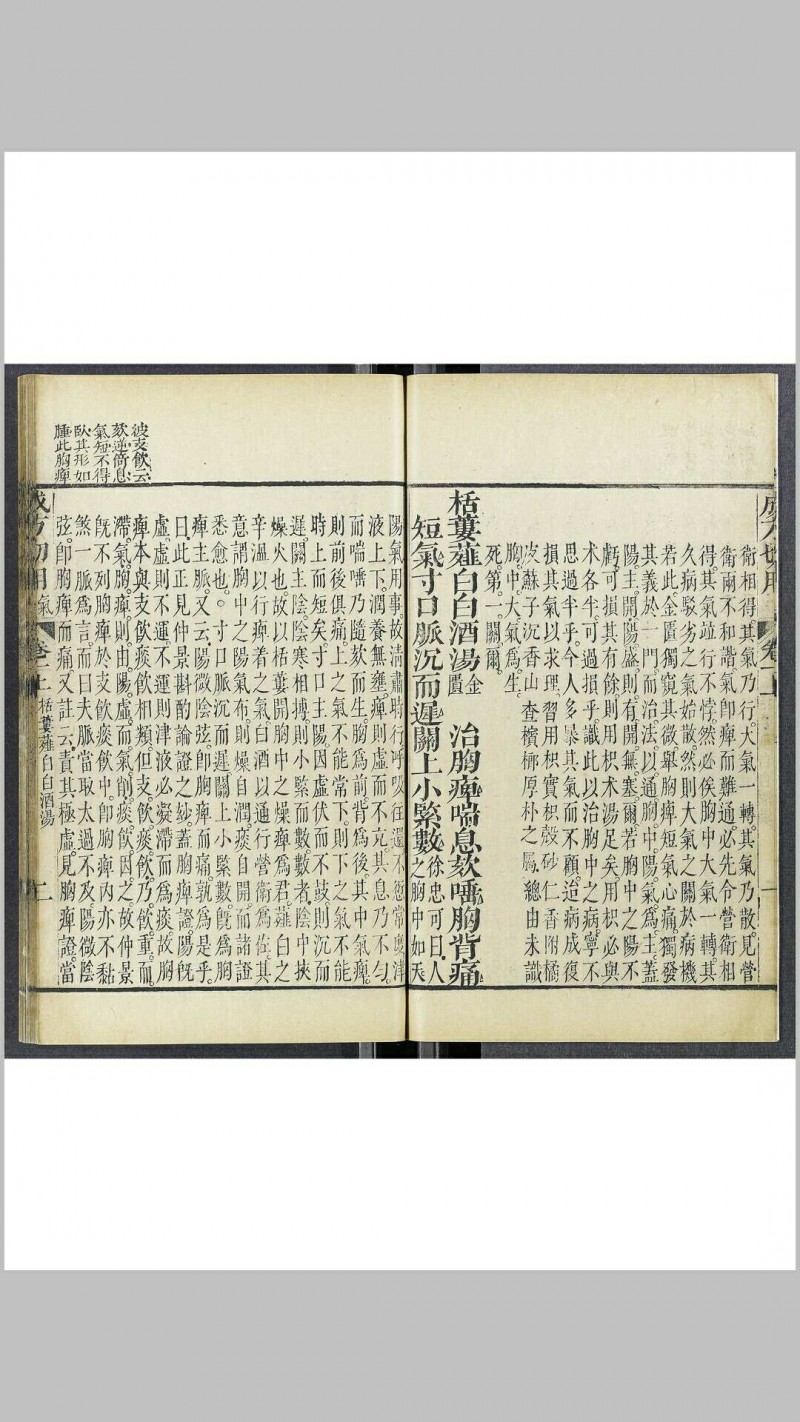 衛相得其氣乃行大氣一轉其氣乃散見營
衛兩不和諧氣卽痺而難通必先令營衛相
得其氣竝行不悖然必俟胸中大氣一轉其
久病駁劣之氣始散然則大氣之關於病機
若此金匱獨窺其微舉胸痺短氣心痛獨發
其義於一門而治法以通胸中陽氣爲主蓋
陽主開陽盛則有開無塞爾若胸中之陽不
虧可損其有餘則用枳术湯足矣用枳必與
术各半可過損乎識此以治胸中之病寧不
思過半乎今人多暴其氣而不顧迫病成復
損其氣以求理習用枳實枳殼砂仁香附橘
皮蘇子沉香山查檳榔厚朴之屬總由未識
胸中大氣爲生
死第一關爾
栝蔞薤白白酒湯 金匱 治胸痺喘息欬唾胸背痛
短氣寸口脈沉而遲關上小緊數 徐忠可曰人之胸中如天
陽氣用事故清肅時行呼吸往還不愆常度津
液上下潤養無壅痺則虛而不充其息乃不勻
而喘唾乃隨欬而生胸爲前背爲後其中氣痺
則前後俱痛上之氣不能常下則下之氣不能
時上而短矣寸口主陽因虛伏而不鼓則沉而
遲關主陰陰寒相搏則小緊而數數者陰中挾
燥火也故以栝蔞開胸中之燥痺爲君薤白之
辛溫以行痺着之氣白酒以通行營衛爲佐其
意謂胸中之陽氣布則燥自潤痰自開而諸證
悉愈也○寸口脈沉而遲關上小緊數旣爲胸
痺主脈又云陽微陰弦卽胸痺而痛孰爲是乎
曰此正見仲景斟酌論證之妙蓋胸痺證陽旣
虛虛則不運不運則津液必凝滯而爲痰故胸
痺本與支飲痰飲相類但支飲痰飲乃飲重而
滯氣胸痺則由陽虛而氣削痰飲因之故仲景
旣不列胸痺於支飲痰飲中卽胸痺內亦不黏
煞一脈爲言而曰夫脈當取太過不及陽微陰
弦卽胸痺而痛又註云責其極虛見胸痺證當
成方切用 氣 卷二上 栝蔞薤白白酒湯 二
彼支飲云
欬逆倚息
氣短不得
臥其形如
腫此胸痺